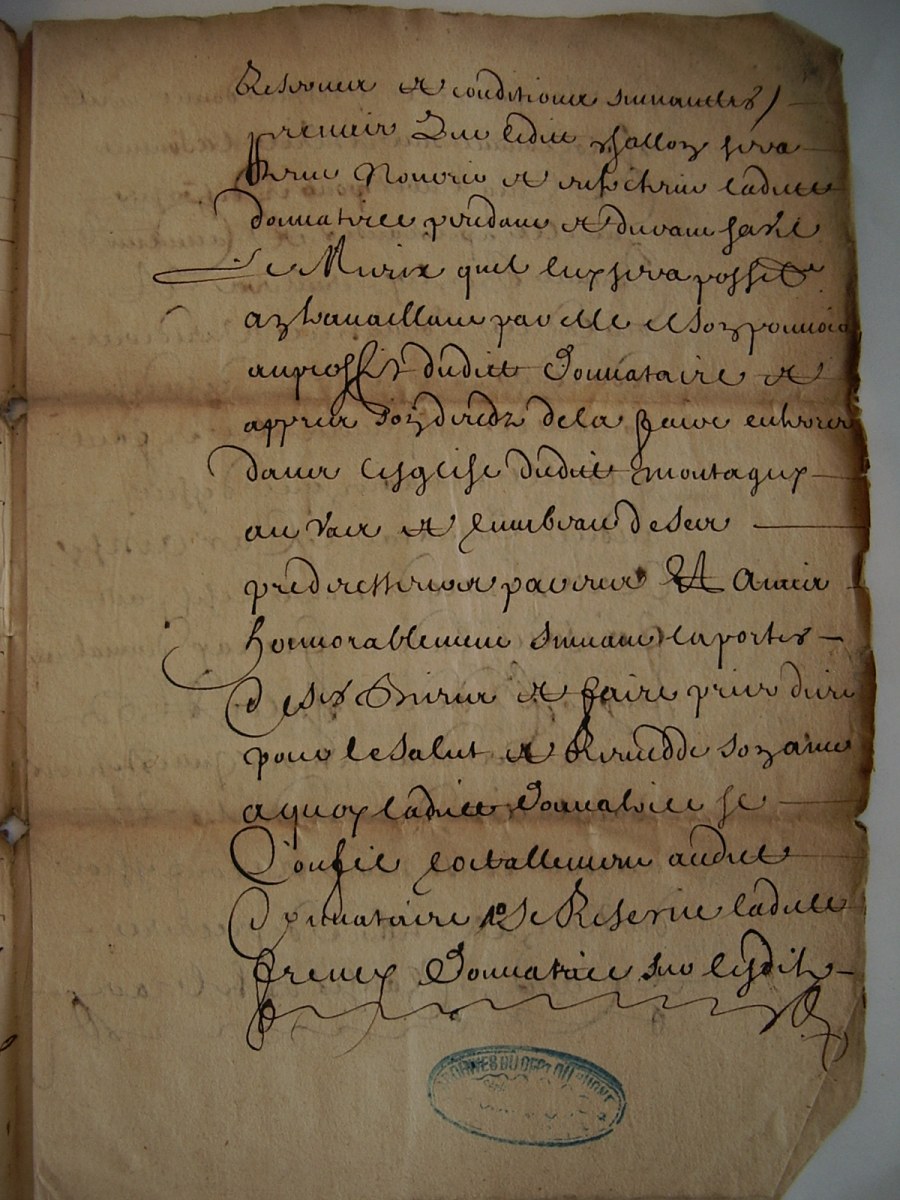 Reserves et conditions suivantes /
premier Que ledit Challon sera
tenu Nourir et entretenir ladite
donnatrice pendant et durant sa vie
Le Mieux quil luy sera possible
en travaillant par elle de son pouvoir
au proffit dudict Donnataire et
appres son deceds de la faire enterrer
dans lesglise dudict montaguy
au vas et tumbeau de ses
predecesseurs parens Et Amis
honnorablement suivant la portee
de ses Biens et faire prier dieu
pour le salut et Remedde de son ame
a quoy ladicte Donnatrice se
Confie totallement audict
Donnataire Se Reserve ladicte
Donnatrice sur lesdits
ARCHIVES DU DEPT DU RHONE